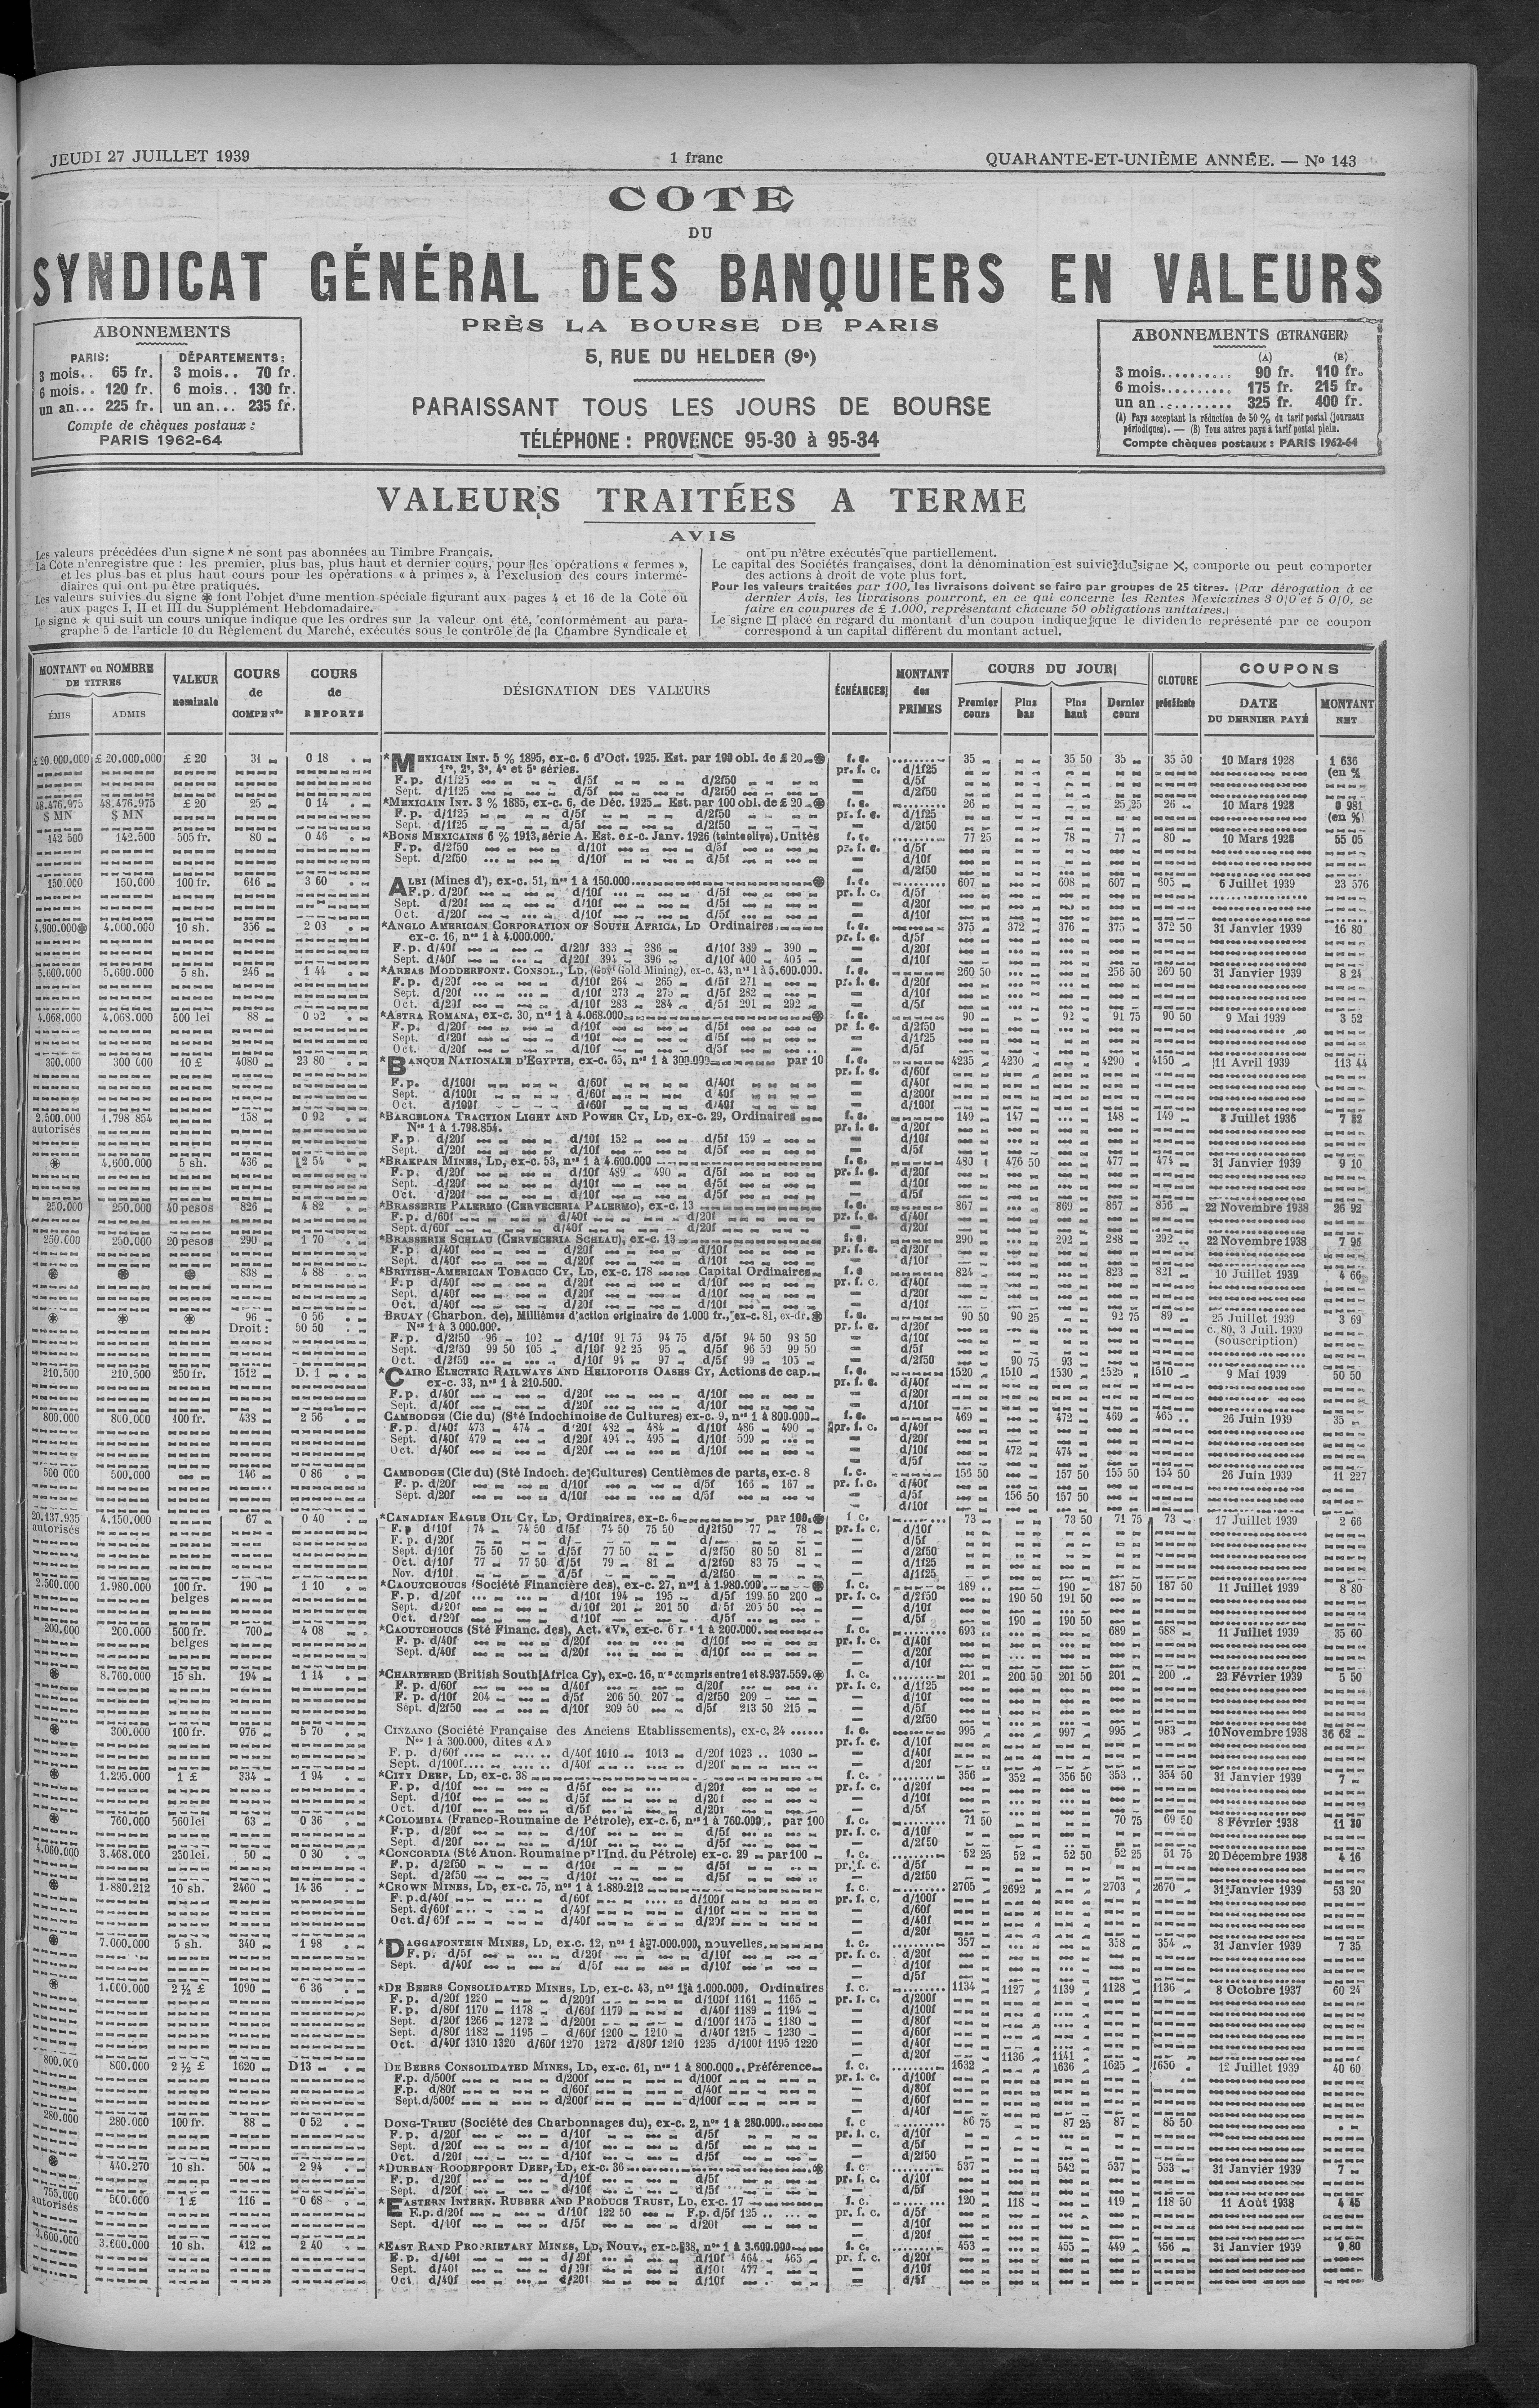 JEUDI 27 JUILLET 1939
1 franc
QUARANTE-ET-UNIÈME ANNÉE. — No 143
COTE
DU
SYNDICAT GÉNÉRAL DES BANQUIERS EN VALEURS
PRÈS LA BOURSE DE PARIS
5, RUE DU HELDER (9e)
PARAISSANT TOUS LES JOURS DE BOURSE
TÉLÉPHONE : PROVENCE 95-30 à 95-34
ABONNEMENTS
PARIS: DÉPARTEMENTS:
3 mois.. 65 fr. 3 mois.. 70 fr.
6 mois.. 120 fr. 6 mois.. 130 fr.
un an... 225 fr. un an... 235 fr.
Compte de chèques postaux :
PARIS 1962-64
ABONNEMENTS (ETRANGER)
(A) (B)
3 mois.......... 90 fr. 110 fr.
6 mois.......... 175 fr. 215 fr.
un an .......... 325 fr. 400 fr.
(A) Pays acceptant la réduction de 50 % du tarif postal (journaux
périodiques). — (B) Tous autres pays à tarif postal plein.
Compte chèques postaux : PARIS 1962-64
VALEURS TRAITÉES A TERME
AVIS
Les valeurs précédées d'un signe * ne sont pas abonnées au Timbre Français.
La Cote n'enregistre que : les premier, plus bas, plus haut et dernier cours, pour les opérations « fermes »,
et les plus bas et plus haut cours pour les opérations « à primes », à l'exclusion des cours intermé-
diaires qui ont pu être pratiqués.
Les valeurs suivies du signe ⊛ font l'objet d'une mention spéciale figurant aux pages 4 et 16 de la Cote ou
aux pages I, II et III du Supplément Hebdomadaire.
Le signe ★ qui suit un cours unique indique que les ordres sur la valeur ont été, conformément au para-
graphe 5 de l'article 10 du Règlement du Marché, exécutés sous le contrôle de la Chambre Syndicale et
ont pu n'être exécutés que partiellement.
Le capital des Sociétés françaises, dont la dénomination est suivie du signe ×, comporte ou peut comporter
des actions à droit de vote plus fort.
Pour les valeurs traitées par 100, les livraisons doivent se faire par groupes de 25 titres. (Par dérogation à ce
dernier Avis, les livraisons pourront, en ce qui concerne les Rentes Mexicaines 3 0|0 et 5 0|0, se
faire en coupures de £ 1.000, représentant chacune 50 obligations unitaires.)
Le signe □ placé en regard du montant d'un coupon indique que le dividende représenté par ce coupon
correspond à un capital différent du montant actuel.
MONTANT ou NOMBRE DE TITRES
ÉMIS ADMIS
VALEUR nominale
COURS de COMPENson
COURS de REPORTS
DÉSIGNATION DES VALEURS
ÉCHÉANCES
MONTANT des PRIMES
COURS DU JOUR
Premier cours Plus bas Plus haut Dernier cours
CLOTURE précédente
COUPONS
DATE DU DERNIER PAYÉ
MONTANT NET
£ 20.000.000 £ 20.000.000 £ 20 31 0 18 *MEXICAIN INT. 5 % 1895, ex-c. 6 d'Oct. 1925. Est. par 100 obl. de £ 20 ⊛ f. c. 35 35 50 35 35 50 10 Mars 1928 1 636
1re, 2e, 3e, 4e et 5e séries. pr. f. c. d/1f25 (en %
F. p. d/1f25 d/5f d/2f50 d/5f
Sept. d/1f25 d/5f d/2f50 d/2f50
48.476.975 48.476.975 £ 20 25 0 14 *MEXICAIN INT. 3 % 1885, ex-c. 6, de Déc. 1925 Est. par 100 obl. de £ 20 ⊛ f. c. 26 25 25 26 10 Mars 1928 0 981
$ MN $ MN F. p. d/1f25 d/5f d/2f50 pr. f. c. d/1f25 (en %)
Sept. d/1f25 d/5f d/2f50 d/2f50
142 500 142.500 505 fr. 80 0 46 *BONS MEXICAINS 6 % 1913, série A. Est. ex-c. Janv. 1926 (teinte olive). Unités f. c. 77 25 78 77 80 10 Mars 1928 55 05
F. p. d/2f50 d/10f d/5f pr. f. c. d/5f
Sept. d/2f50 d/10f d/5f d/10f
d/2f50
150.000 150.000 100 fr. 616 3 60 ALBI (Mines d'), ex-c. 51, nos 1 à 150.000 ⊛ f. c. 607 608 607 605 6 Juillet 1939 23 576
F. p. d/20f d/10f d/5f pr. f. c. d/5f
Sept. d/20f d/10f d/5f d/20f
Oct. d/20f d/10f d/5f d/10f
4.900.000⊛ 4.000.000 10 sh. 356 2 03 *ANGLO AMERICAN CORPORATION OF SOUTH AFRICA, LD Ordinaires f. c. 375 372 376 375 372 50 31 Janvier 1939 16 80
ex-c. 16, nos 1 à 4.000.000. pr. f. c. d/5f
F. p. d/40f d/20f 383 386 d/10f 389 390 d/20f
Sept. d/40f d/20f 394 396 d/10f 400 403 d/10f
5.600.000 5.600.000 5 sh. 246 1 44 *AREAS MODDERFONT. CONSOL., LD, (Govt Gold Mining), ex-c. 43, nos 1 à 5.600.000. f. c. 260 50 256 50 260 50 31 Janvier 1939 8 24
F. p. d/20f d/10f 264 265 d/5f 271 pr. f. c. d/20f
Sept. d/20f d/10f 273 275 d/5f 282 d/10f
Oct. d/20f d/10f 283 284 d/5f 291 292 d/5f
4.068.000 4.068.000 500 lei 88 0 52 *ASTRA ROMANA, ex-c. 30, nos 1 à 4.068.000 ⊛ f. c. 90 92 91 75 90 50 9 Mai 1939 3 52
F. p. d/20f d/10f d/5f pr. f. c. d/2f50
Sept. d/20f d/10f d/5f d/1f25
Oct. d/20f d/10f d/5f d/5f
300.000 300 000 10 £ 4080 23 80 *BANQUE NATIONALE D'EGYPTE, ex-c. 65, nos 1 à 300.000 par 10 f. c. 4235 4230 4290 4150 11 Avril 1939 113 44
pr. f. c. d/60f
F. p. d/100f d/60f d/40f d/40f
Sept. d/100f d/60f d/40f d/200f
Oct. d/100f d/60f d/40f d/100f
2.500.000 1.798 854 158 0 92 *BARCELONA TRACTION LIGHT AND POWER CY, LD, ex-c. 29, Ordinaires f. c. 149 147 148 149 8 Juillet 1936 7 82
autorisés Nos 1 à 1.798.854. pr. f. c. d/20f
F. p. d/20f d/10f 152 d/5f 159 d/10f
Sept. d/20f d/10f d/5f d/5f
⊛ 4.600.000 5 sh. 436 2 54 *BRAKPAN MINES, LD, ex-c. 53, nos 1 à 4.600.000 f. c. 480 476 50 477 474 31 Janvier 1939 9 10
F. p. d/20f d/10f 489 490 d/5f pr. f. c. d/20f
Sept. d/20f d/10f d/5f d/10f
Oct. d/20f d/10f d/5f d/5f
250.000 250.000 40 pesos 826 4 82 *BRASSERIE PALERMO (CERVECERIA PALERMO), ex-c. 13 f. c. 867 869 867 856 22 Novembre 1938 26 92
F. p. d/60f d/40f d/20f pr. f. c. d/40f
Sept. d/60f d/40f d/20f d/20f
250.000 250.000 20 pesos 290 1 70 *BRASSERIE SCHLAU (CERVECERIA SCHLAU), ex-c. 13 f. c. 290 292 288 292 22 Novembre 1938 7 96
F. p. d/40f d/20f d/10f pr. f. c. d/20f
Sept. d/40f d/20f d/10f d/10f
⊛ ⊛ ⊛ 838 4 88 *BRITISH-AMERICAN TOBACCO CY, LD, ex-c. 178 Capital Ordinaires f. c 824 823 821 10 Juillet 1939 4 66
F. p. d/40f d/20f d/10f pr. f. c. d/40f
Sept. d/40f d/20f d/10f d/20f
Oct. d/40f d/20f d/10f d/10f
⊛ ⊛ ⊛ 96 0 56 BRUAY (Charbon. de), Millièmes d'action originaire de 1.000 fr., ex-c. 81, ex-dr. ⊛ f. c. 90 50 90 25 92 75 89 25 Juillet 1939 3 69
Droit : 50 50 Nos 1 à 3 000.000. pr. f. c. d/20f c. 80, 3 Juil. 1939
F. p. d/2f50 96 102 d/10f 91 75 94 75 d/5f 94 50 98 50 d/10f (souscription)
Sept. d/2f50 99 50 105 d/10f 92 25 95 d/5f 96 50 99 50 d/5f
Oct. d/2f50 d/10f 94 97 d/5f 99 103 d/2f50 90 75 93
210.500 210.500 250 fr. 1512 D. 1 *CAIRO ELECTRIC RAILWAYS AND HELIOPOLIS OASES CY, Actions de cap. f. c. 1520 1510 1530 1525 1510 9 Mai 1939 50 50
ex-c. 33, nos 1 à 210.500. pr. f. c. d/40f
F. p. d/40f d/20f d/10f d/20f
Sept. d/40f d/20f d/10f d/10f
800.000 800.000 100 fr. 438 2 56 CAMBODGE (Cie du) (Sté Indochinoise de Cultures) ex-c. 9, nos 1 à 800.000 f. c. 469 472 469 465 26 Juin 1939 35
F. p. d/40f 473 474 d/20f 482 484 d/10f 486 490 pr. f. c. d/40f
Sept. d/40f 479 d/20f 494 495 d/10f 509 d/20f
Oct. d/40f d/20f d/10f d/10f 472 474
d/5f
500 000 500.000 146 0 86 CAMBODGE (Cie du) (Sté Indoch. de Cultures) Centièmes de parts, ex-c. 8 f. c. 156 50 157 50 155 50 154 50 26 Juin 1939 11 227
F. p. d/20f d/10f d/5f 166 167 pr. f. c. d/40f
Sept. d/20f d/10f d/5f d/5f 156 50 157 50
d/10f
20.137.935 4.150.000 67 0 40 *CANADIAN EAGLE OIL CY, LD, Ordinaires, ex-c. 6 par 100 ⊛ f. c. 73 73 50 71 75 73 17 Juillet 1939 2 66
autorisés F. p d/10f 74 74 50 d/5f 74 50 75 50 d/2f50 77 78 pr. f. c. d/10f
F. p. d/20f d/ d/ d/5f
Sept. d/10f 75 50 d/5f 77 50 d/2f50 80 50 81 d/2f50
Oct. d/10f 77 77 50 d/5f 79 81 d/2f50 83 75 d/1f25
Nov. d/10f d/5f d/2f50 d/1f25
2.500.000 1.980.000 100 fr. 190 1 10 *CAOUTCHOUCS (Société Financière des), ex-c. 27, nos 1 à 1.980.000 ⊛ f. c. 189 190 187 50 187 50 11 Juillet 1939 8 80
belges F. p. d/20f d/10f 194 195 d/5f 199 50 200 pr. f. c. d/2f50 190 50 191 50
Sept. d/20f d/10f 201 201 50 d/5f 205 50 d/10f
Oct. d/20f d/10f d/5f d/5f 190 190 50
200.000 200.000 500 fr. 700 4 08 *CAOUTCHOUCS (Sté Financ. des), Act. «V», ex-c. 6 nos 1 à 200.000 f. c. 693 689 688 11 Juillet 1939 35 60
belges F. p. d/40f d/20f d/10f pr. f. c. d/40f
Sept. d/40f d/20f d/10f d/20f
d/10f
⊛ 8.760.000 15 sh. 194 1 14 *CHARTERED (British South Africa Cy), ex-c. 16, nos compris entre 1 et 8.937.559. ⊛ f. c. 201 200 50 201 50 201 200 23 Février 1939 5 50
F. p. d/60f d/40f d/20f pr. f. c. d/1f25
F. p. d/10f 204 d/5f 206 50 207 d/2f50 209 d/10f
Sept. d/2f50 d/10f 209 50 d/5f 213 50 215 d/5f
d/2f50
⊛ 300.000 100 fr. 976 5 70 CINZANO (Société Française des Anciens Etablissements), ex-c, 24 f. c. 995 997 995 983 10 Novembre 1938 36 62
Nos 1 à 300.000, dites «A» pr. f. c. d/10f
F. p. d/60f d/40f 1010 1013 d/20f 1023 1030 d/40f
Sept. d/100f d/40f d/20f d/20f
⊛ 1.295.000 1 £ 334 1 94 *CITY DEEP, LD, ex-c. 38 f. c. 356 352 356 50 353 354 50 31 Janvier 1939 7
F. p. d/10f d/5f d/20f pr. f. c. d/20f
Sept. d/10f d/5f d/20f d/10f
Oct. d/10f d/5f d/20f d/5f
⊛ 760.000 560 lei 63 0 36 *COLOMBIA (Franco-Roumaine de Pétrole), ex-c. 6, nos 1 à 760.000. par 100 f. c. 71 50 70 75 69 50 8 Février 1938 11 30
F. p. d/20f d/10f d/5f pr. f. c. d/10f
Sept. d/20f d/10f d/5f d/2f50
4.060.000 3.468.000 250 lei. 50 0 30 *CONCORDIA (Sté Anon. Roumaine pr l'Ind. du Pétrole) ex-c. 29 par 100 f. c. 52 25 52 52 50 52 25 51 75 20 Décembre 1938 4 16
F. p. d/2f50 d/10f d/5f pr. f. c. d/5f
Sept. d/2f50 d/10f d/5f d/2f50
⊛ 1.880.212 10 sh. 2460 14 36 *CROWN MINES, LD, ex-c. 75, nos 1 à 1.889.212 f. c. 2705 2692 2703 2670 31 Janvier 1939 53 20
F. p. d/40f d/60f d/100f pr. f. c. d/100f
Sept. d/60f d/40f d/10f d/60f
Oct. d/60f d/40f d/20f d/40f
d/20f
⊛ 7.000.000 5 sh. 340 1 98 *DAGGAFONTEIN MINES, LD, ex.c. 12, nos 1 à 7.000.000, nouvelles. f. c. 357 358 354 31 Janvier 1939 7 35
F. p. d/5f d/20f d/10f pr. f. c. d/20f
Sept. d/40f d/5f d/10f d/10f
d/5f
⊛ 1.000.000 2 ½ £ 1090 6 36 *DE BEERS CONSOLIDATED MINES, LD, ex-c. 43, nos 1 à 1.000.000, Ordinaires f. c. 1134 1127 1139 1128 1136 8 Octobre 1937 60 24
F. p. d/20f 1220 d/200f d/100f 1161 1165 pr. f. c. d/200f
F. p. d/80f 1170 1178 d/60f 1179 d/40f 1189 1194 d/100f
Sept. d/20f 1266 1272 d/200f d/100f 1175 1180 d/80f
Sept. d/80f 1182 1195 d/60f 1200 1210 d/40f 1215 1230 d/60f
Oct. d/40f 1310 1320 d/60f 1270 1272 d/80f 1210 1235 d/100f 1195 1220 d/40f
d/20f 1136 1141
800.000 800.000 2 ½ £ 1620 D13 DE BEERS CONSOLIDATED MINES, LD, ex-c. 61, nos 1 à 800.000 Préférence f. c. 1632 1636 1625 1650 12 Juillet 1939 40 60
F.p. d/500f d/200f d/100f pr. f. c. d/100f
F.p. d/80f d/60f d/40f d/80f
Sept. d/500f d/200f d/100f d/60f
d/40f
280.000 280.000 100 fr. 88 0 52 DONG-TRIEU (Société des Charbonnages du), ex-c. 2, nos 1 à 280.000 f. c 86 75 87 25 87 85 50
F. p. d/20f d/10f d/5f pr. f. c. d/10f
Sept. d/20f d/10f d/5f d/5f
Oct. d/20f d/10f d/5f d/2f50
⊛ 440.270 10 sh. 504 2 94 *DURBAN ROODEPOORT DEEP, LD, ex-c. 36 ⊛ f. c 537 542 537 533 31 Janvier 1939 7
F. p. d/20f d/10f d/5f pr. f. c. d/10f
Sept. d/20f d/10f d/5f d/5f
755.000 500.000 1 £ 116 0 68 *EASTERN INTERN. RUBBER AND PRODUCE TRUST, LD, ex-c. 17 f. c. 120 118 119 118 50 11 Août 1938 4 45
autorisés F.p. d/20f d/10f 122 50 F.p. d/5f 125 pr. f. c. d/5f
Sept. d/10f d/5f d/20f d/10f
d/20f
3.600.000 3.600.000 10 sh. 412 2 40 *EAST RAND PROPRIETARY MINES, LD, Nouv., ex-c. 38, nos 1 à 3.600.000 f. c. 453 455 449 456 31 Janvier 1939 9 80
F. p. d/40f d/20f d/10f 464 465 pr. f. c. d/20f
Sept. d/40f d/20f d/10f 477 d/10f
Oct d/40f d/20f d/10f d/5f